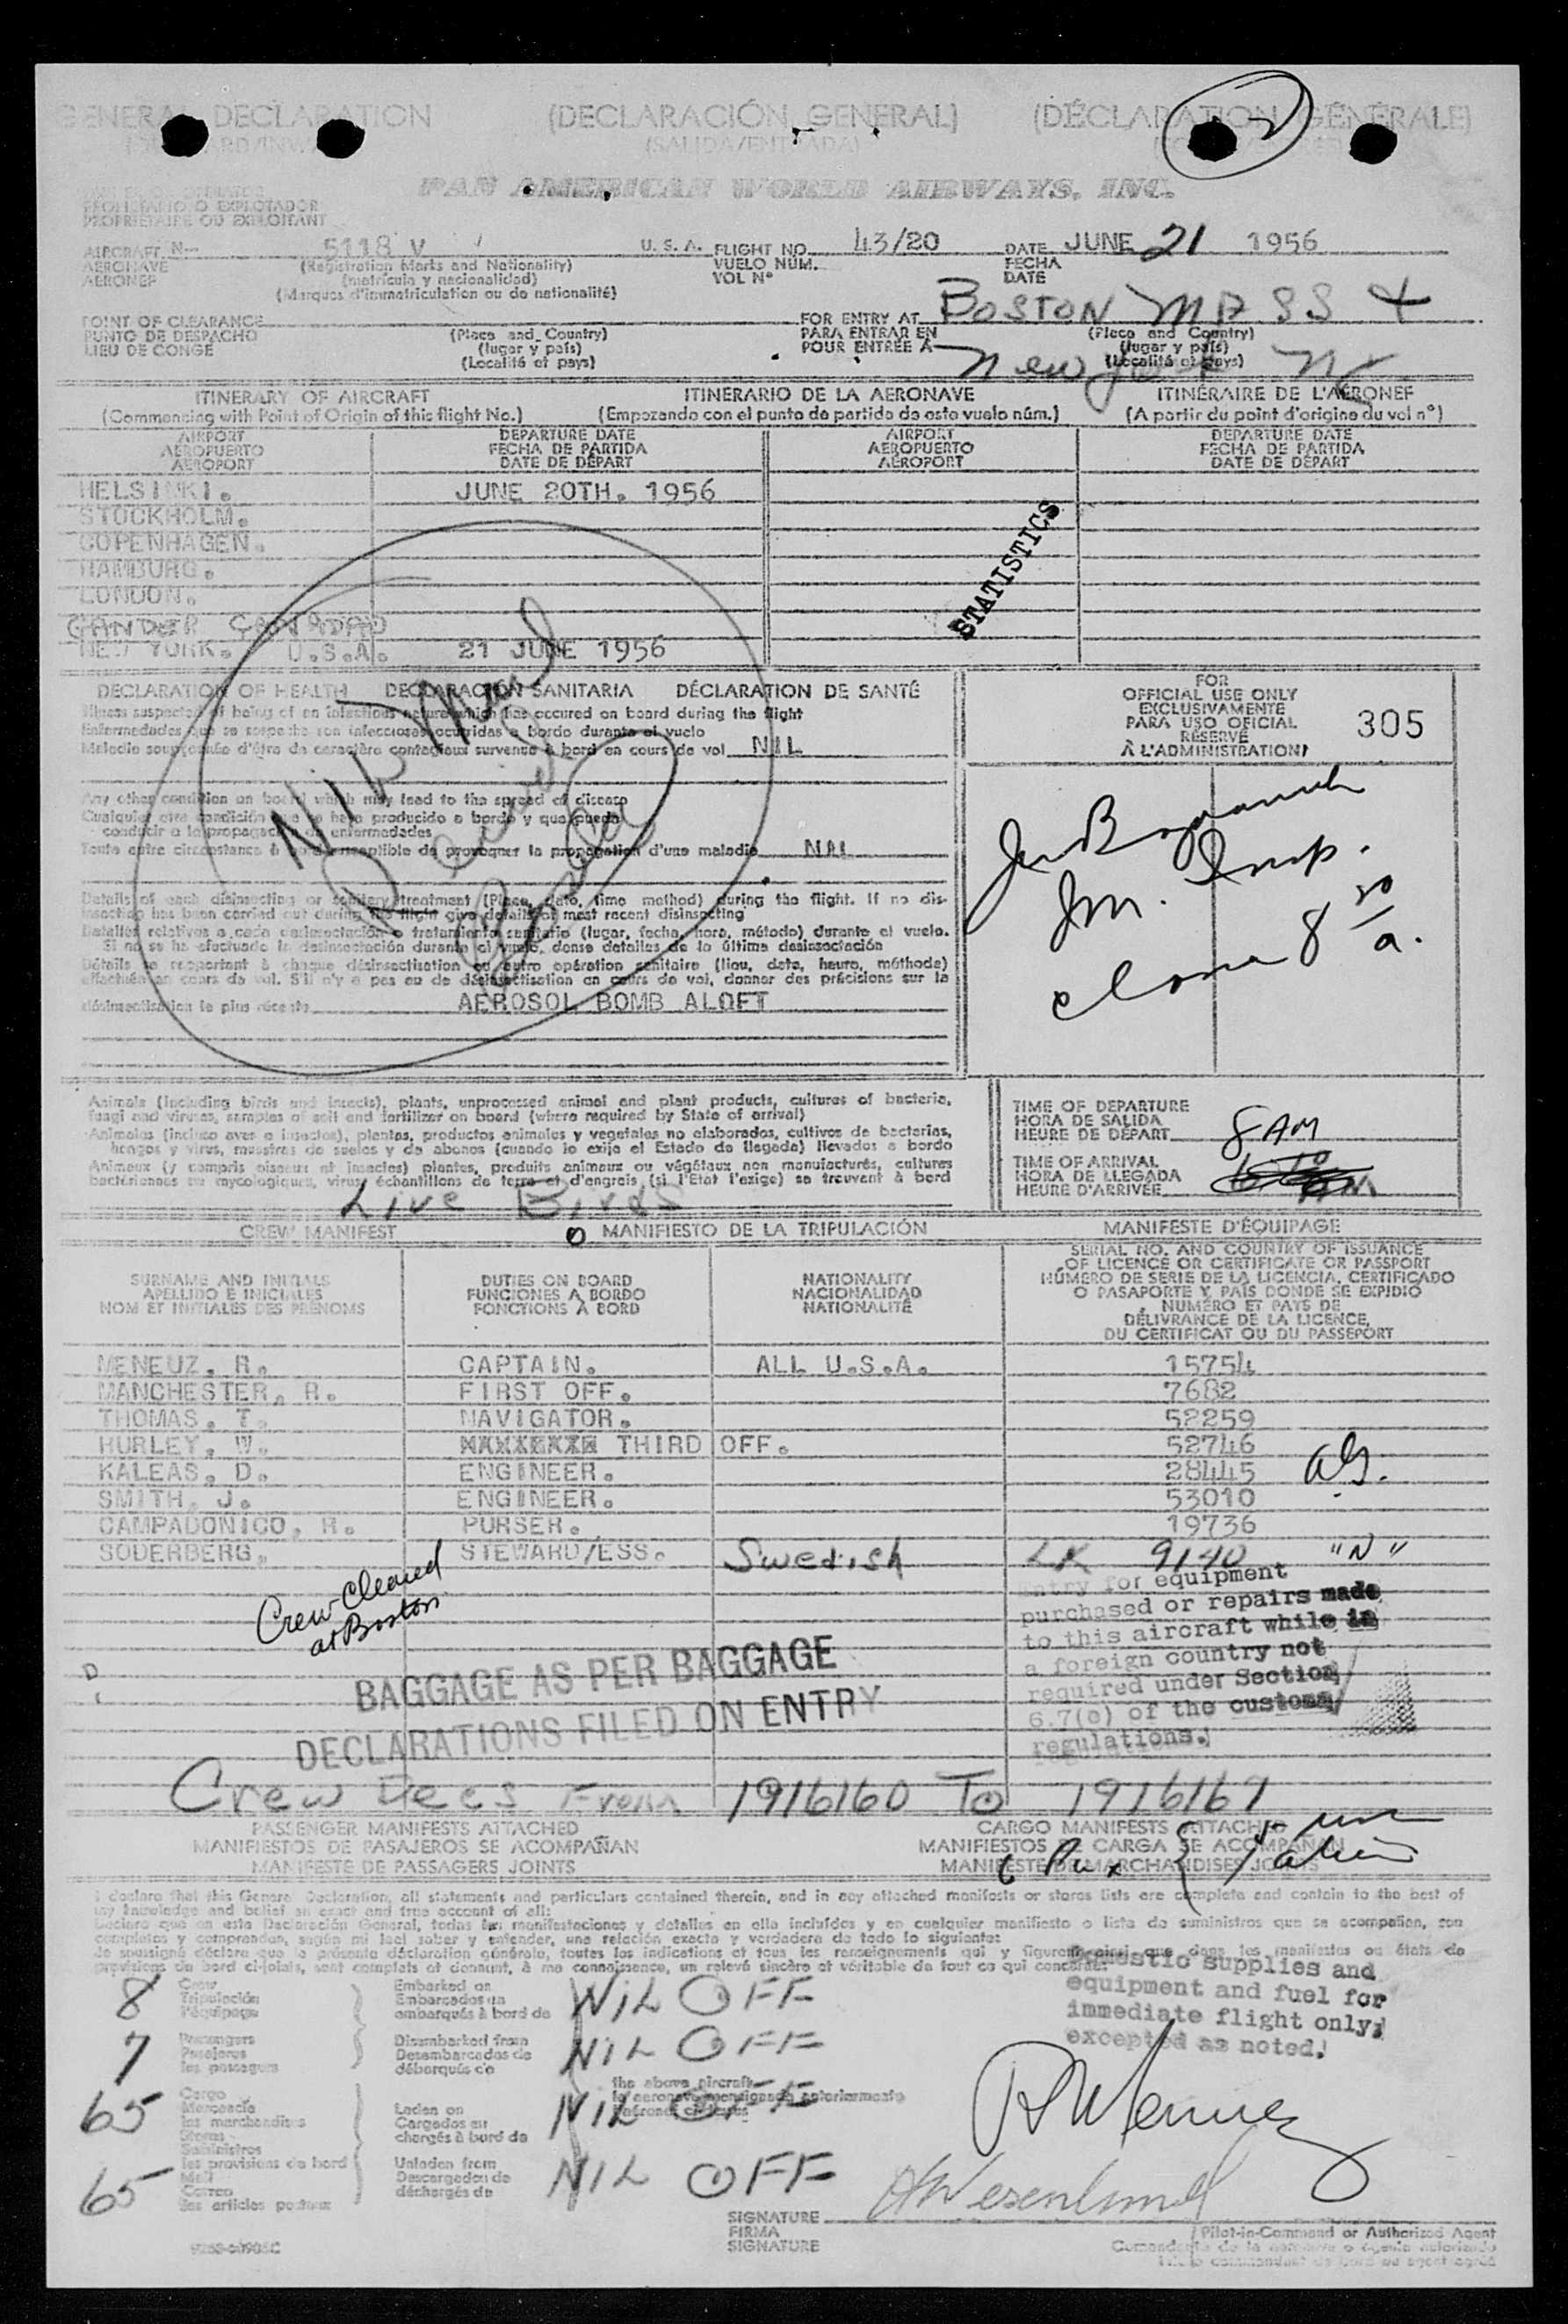 GENERAL DECLARATION (DECLARACIÓN GENERAL) (DÉCLARATION GÉNÉRALE)
(SALIDA/ENTRADA)
2
PAN AMERICAN WORLD AIRWAYS, INC.
PROPIETARIO O EXPLOTADOR
PROPRIÉTAIRE OU EXPLOITANT
AIRCRAFT N- 5118 V U. S. A. FLIGHT NO. 43/20 DATE JUNE 21 1956
AERONAVE (Registration Marks and Nationality) VUELO NÚM. FECHA
AÉRONEF (matrícula y nacionalidad) VOL Nº DATE
(Marques d'immatriculation ou de nationalité)
POINT OF CLEARANCE FOR ENTRY AT BOSTON MASS &
PUNTO DE DESPACHO (Place and Country) PARA ENTRAR EN (Place and Country)
LIEU DE CONGÉ (lugar y país) POUR ENTRÉE À New York NY (lugar y país)
(Localité et pays) (Localité et pays)
ITINERARY OF AIRCRAFT ITINERARIO DE LA AERONAVE ITINÉRAIRE DE L'AÉRONEF
(Commencing with Point of Origin of this flight No.) (Empezando con el punto de partida de este vuelo núm.) (A partir du point d'origine du vol nº)
AIRPORT DEPARTURE DATE AIRPORT DEPARTURE DATE
AEROPUERTO FECHA DE PARTIDA AEROPUERTO FECHA DE PARTIDA
AÉROPORT DATE DE DÉPART AÉROPORT DATE DE DÉPART
HELSINKI. JUNE 20TH. 1956
STOCKHOLM.
COPENHAGEN.
HAMBURG.
LONDON.
GANDER CANADA
NEW YORK. U.S.A. 21 JUNE 1956
STATISTICS
DECLARATION OF HEALTH DECLARACIÓN SANITARIA DÉCLARATION DE SANTÉ
Illness suspected of being of an infectious nature which has occured on board during the flight
Enfermedades que se sospecha son infecciosas ocurridas a bordo durante el vuelo
Maladie soupçonnée d'être de caractère contagieux survenue à bord en cours de vol NIL
Any other condition on board which may lead to the spread of disease
Cualquier otra condición que se haya producido a bordo y que pueda
conducir a la propagación de enfermedades
Toute autre circonstance à bord susceptible de provoquer la propagation d'une maladie NIL
Details of each disinsecting or sanitary treatment (Place, date, time method) during the flight. If no dis-
insecting has been carried out during the flight give details of most recent disinsecting
Detalles relativos a cada desinsectación o tratamiento sanitario (lugar, fecha, hora, método) durante el vuelo.
Si no se ha efectuado la desinsectación durante el vuelo, dense detalles de la última desinsectación
Détails se rapportant à chaque désinsectisation ou autre opération sanitaire (lieu, date, heure, méthode)
effectuée au cours de vol. S'il n'y a pas eu de désinsectisation en cours de vol, donner des précisions sur la
désinsectisation la plus récente AEROSOL BOMB ALOFT
FOR
OFFICIAL USE ONLY
EXCLUSIVAMENTE
PARA USO OFICIAL
RÉSERVÉ
À L'ADMINISTRATION
305
Im. Insp.
8 30 a.
Animals (including birds and insects), plants, unprocessed animal and plant products, cultures of bacteria,
fungi and viruses, samples of soil and fertilizer on board (where required by State of arrival)
Animales (incluso aves e insectos), plantas, productos animales y vegetales no elaborados, cultivos de bacterias,
hongos y virus, muestras de suelos y de abonos (cuando lo exija el Estado de llegada) llevados a bordo
Animaux (y compris oiseaux et insectes) plantes, produits animaux ou végétaux non manufacturés, cultures
bactériennes ou mycologiques, virus, échantillons de terre et d'engrais (si l'Etat l'exige) se trouvent à bord
Live Birds
TIME OF DEPARTURE
HORA DE SALIDA
HEURE DE DÉPART 8 AM
TIME OF ARRIVAL
HORA DE LLEGADA
HEURE D'ARRIVÉE
CREW MANIFEST MANIFIESTO DE LA TRIPULACIÓN MANIFESTE D'ÉQUIPAGE
SURNAME AND INITIALS DUTIES ON BOARD NATIONALITY
APELLIDO E INICIALES FUNCIONES A BORDO NACIONALIDAD
NOM ET INITIALES DES PRÉNOMS FONCTIONS À BORD NATIONALITÉ
SERIAL NO. AND COUNTRY OF ISSUANCE
OF LICENCE OR CERTIFICATE OR PASSPORT
NÚMERO DE SERIE DE LA LICENCIA, CERTIFICADO
O PASAPORTE Y PAÍS DONDE SE EXPIDIÓ
NUMÉRO ET PAYS DE
DÉLIVRANCE DE LA LICENCE,
DU CERTIFICAT OU DU PASSEPORT
MENEUZ, R. CAPTAIN. ALL U.S.A. 15754
MANCHESTER, R. FIRST OFF. 7682
THOMAS, T. NAVIGATOR. 52259
HURLEY, W. THIRD OFF. 52746
KALEAS, D. ENGINEER. 28445
SMITH, J. ENGINEER. 53010
CAMPADONICO, R. PURSER. 19736
SODERBERG, STEWARD/ESS. Swedish LK 9140 "N"
Crew Cleared
at Boston
Entry for equipment
purchased or repairs made
to this aircraft while in
a foreign country not
required under Section
6.7(e) of the customs
regulations.
BAGGAGE AS PER BAGGAGE
DECLARATIONS FILED ON ENTRY
Crew Decs From 1916160 To 1916167
PASSENGER MANIFESTS ATTACHED CARGO MANIFESTS ATTACHED
MANIFIESTOS DE PASAJEROS SE ACOMPAÑAN MANIFIESTOS DE CARGA SE ACOMPAÑAN
MANIFESTE DE PASSAGERS JOINTS MANIFESTE DE MARCHANDISES JOINTS
I declare that this General Declaration, all statements and particulars contained therein, and in any attached manifests or stores lists are complete and contain to the best of
my knowledge and belief an exact and true account of all:
Declaro que en esta Declaración General, todas las manifestaciones y detalles en ella incluídos y en cualquier manifiesto o lista de suministros que se acompañen, son
completos y comprenden, según mi leal saber y entender, una relación exacta y verdadera de todo lo siguiente:
Je soussigné déclare que la présente déclaration générale, toutes les indications et tous les renseignements qui y figurent ainsi que dans les manifestes ou états de
provisions de bord ci-joints, sont complets et donnent, à ma connaissance, un relevé sincère et véritable de tout ce qui concerne:
Domestic supplies and
equipment and fuel for
immediate flight only,
excepted as noted.
8 Crew Embarked on NIL OFF
Tripulación Embarcados en
l'équipage embarqués à bord de
7 Passengers Disembarked from NIL OFF
Pasajeros Desembarcados de
les passagers débarqués de
the above aircraft
65 Cargo Laden on NIL OFF
Mercancía Cargados en
les marchandises chargés à bord de
Stores
Suministros
les provisions de bord Unladen from NIL OFF
65 Mail Descargados de
Correo déchargés de
les articles postaux
SIGNATURE
FIRMA
SIGNATURE
Pilot-in-Command or Authorized Agent
Comandante de la aeronave o agente autorizado